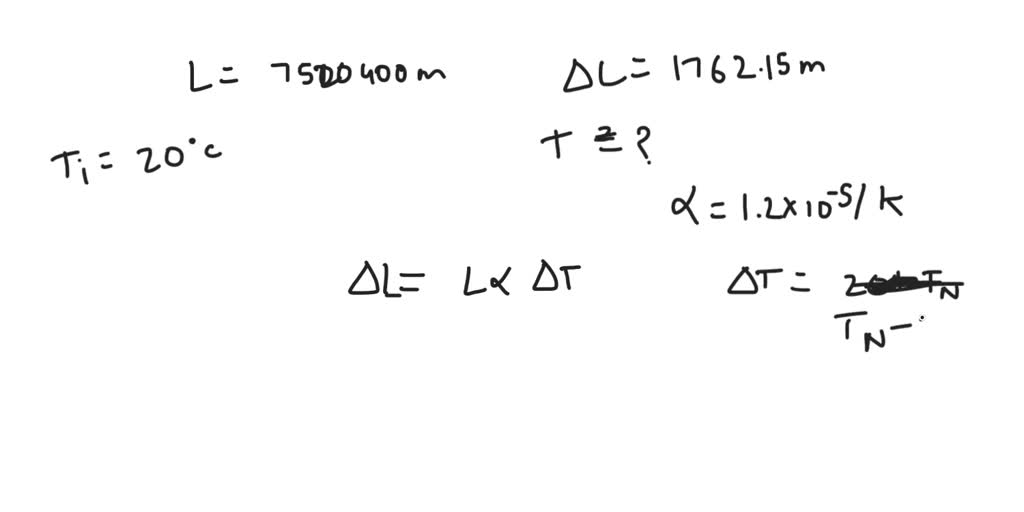 L = 7500400m ΔL = 1762.15m
Ti = 20°c T = ?
α = 1.2x10⁻⁵/ K
ΔL = Lα ΔT ΔT =
TN -